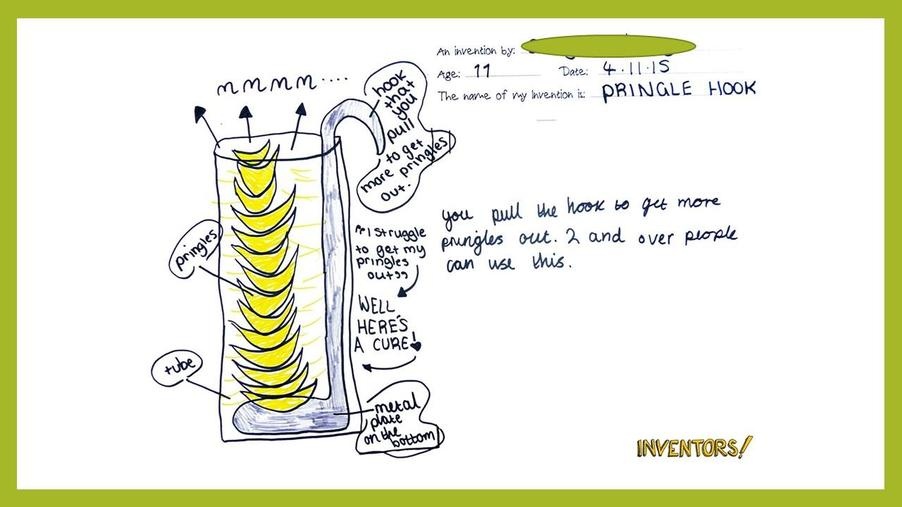 An invention by:
Age: 11 Date: 4.11.15
The name of my invention is: PRINGLE HOOK
mmmm....
hook
that
you
pull
to get
more pringles
out.
you pull the hook to get more
pringles out. 2 and over people
can use this.
pringles
"I struggle
to get my
pringles
out"
WELL
HERE'S
A CURE!
tube
metal
plate
on the
bottom
INVENTORS!